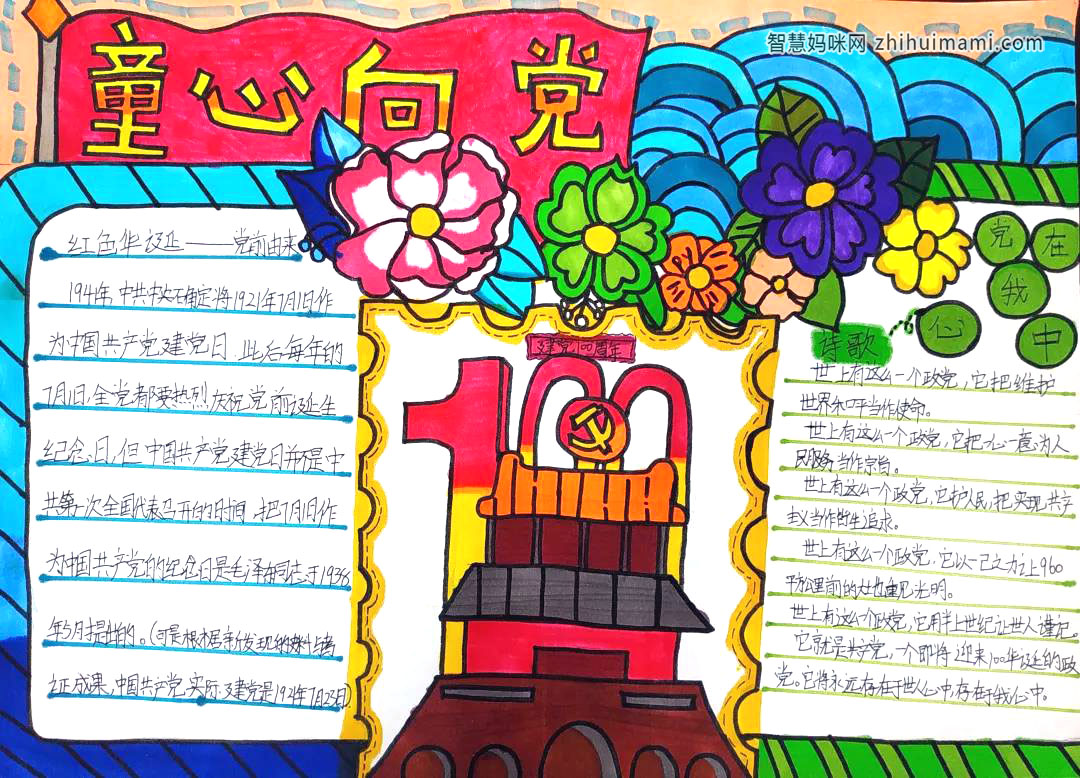 智慧妈咪网 zhihuimami.com
童心向党
红色华诞——党前由来
1941年,中共中央确定将1921年7月1日作
为中国共产党建党日.此后每年的
7月1日,全党都要热烈庆祝党前诞生
纪念日,但中国共产党建党日并不是中
共第一次全国代表召开的时间,把7月1日作
为中国共产党的纪念日是毛泽东同志于1938
年5月提出的。(可是根据新发现的
证成果,中国共产党实际建党是1921年7月23日
建党100周年
100
党在我心中
诗歌
世上有这么一个政党,它把维护
世界和平当作使命。
世上有这么一个政党,它把一心一意为人
民服务当作宗旨。
世上有这么一个政党,它护人民,把实现共产
主义当作毕生追求。
世上有这么一个政党,它以一己之力让960
平方公里前的大地重见光明。
世上有这么一个政党,它用半上世纪让世人谨记。
它就是共产党,一个即将迎来100华诞的政
党。它将永远存在于世人心中,存在于我心中。